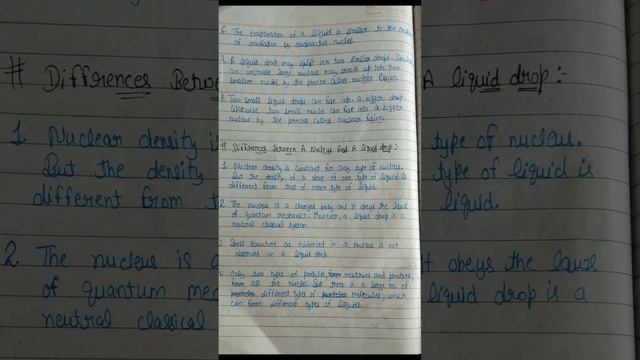 6. The evaporation of a liquid is similar to the
of radiation by radioactive nuclei.
7. A liquid drop may split into two similar drops. Similarly
an unstable large nucleus may break up into two
smaller nuclei by the process called nuclear fission.
8. Two small liquid drops can fuse into a bigger drop.
Likewise, two small nuclei can fuse into a bigger
nucleus by the process called nuclear fusion.
# Differences Between A Nucleus And A liquid drop:-
1. Nuclear density is constant for any type of nucleus.
But the density of a drop of one type of liquid is
different from that of other type of liquid.
2. The nucleus is a charged body and it obeys the laws
of quantum mechanics. However, a liquid drop is a
neutral classical system.
3. Shell structure as evidenced in a nucleus is not
observed in a liquid drop.
4. Only two types of particles, neutrons and protons,
form all the nuclei. But there is a large no. of
different types of molecules, which
can form different types of liquid.
# Differences Betw
A liquid drop:-
1. Nuclear density is
type of nucleus.
But the density
type of liquid is
different from t
liquid.
2. The nucleus is a
t obeys the laws
of quantum mec
liquid drop is a
neutral classical